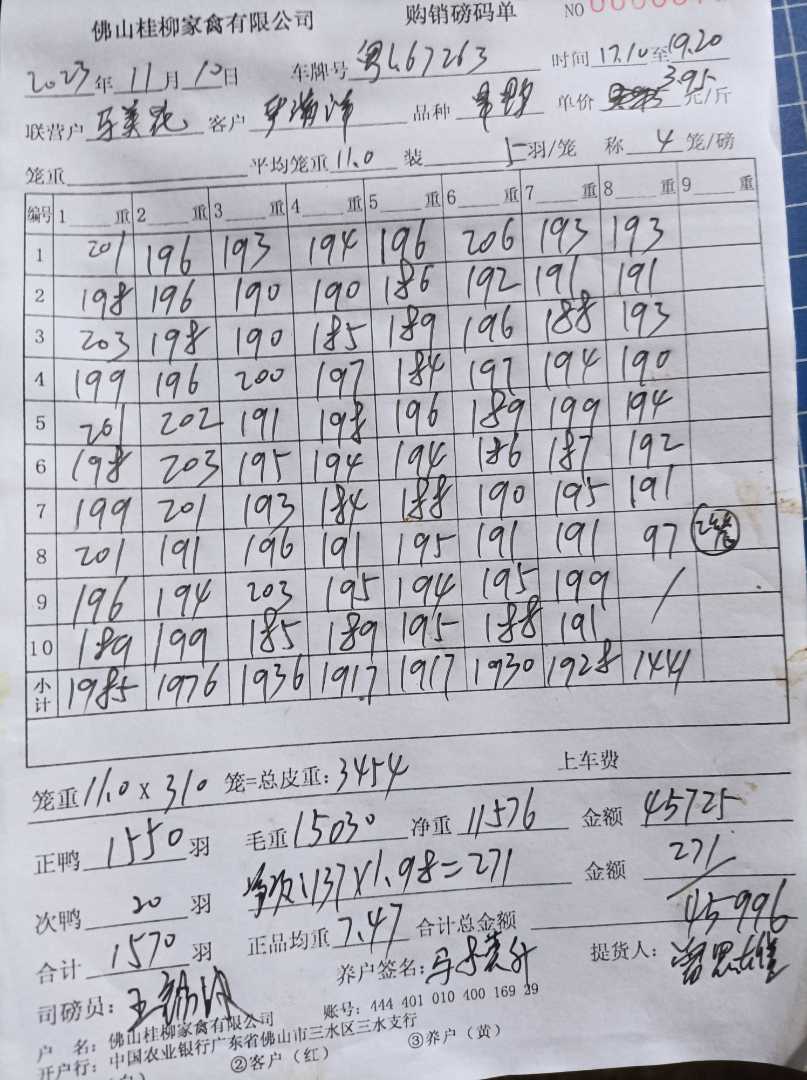 佛山桂柳家禽有限公司 购销磅码单 NO
2023年11月10日 车牌号 粤L67263 时间 17.10至19.20
联营户 客户 品种 单价 3.95 元/斤
笼重 平均笼重 11.0 装 5 羽/笼 称 4 笼/磅
编号 1 重 2 重 3 重 4 重 5 重 6 重 7 重 8 重 9 重
1 201 196 193 194 196 206 193 193
2 198 196 190 190 186 192 191 191
3 203 198 190 185 189 196 188 193
4 199 196 200 197 184 197 194 190
5 201 202 191 198 196 189 199 194
6 198 203 195 194 194 186 187 192
7 199 201 193 184 188 190 195 191
8 201 191 196 191 195 191 191 97
9 196 194 203 195 194 195 199 /
10 189 199 185 189 195 188 191
小计 1985 1976 1936 1917 1917 1930 1928 1441
笼重 11.0 x 310 笼=总皮重: 3454 上车费
正鸭 1550 羽 毛重 15030 净重 11576 金额 45725
次鸭 20 羽 137 x 1.98 = 271 金额 271
合计 1570 羽 正品均重 7.47 合计总金额 45996
司磅员: 养户签名: 提货人:
户 名: 佛山桂柳家禽有限公司 账号: 444 401 010 400 169 29
开户行: 中国农业银行广东省佛山市三水区三水支行
②客户(红) ③养户(黄)